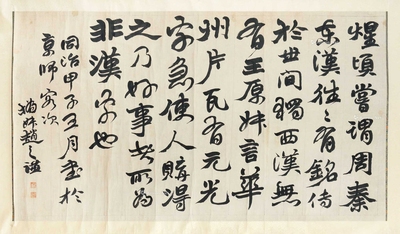 煌頃嘗謂周秦
東漢往々有銘傳
於世間獨西漢無
有王原叔言華
州片瓦有元光
字急使人購得
之乃好事者所為
非漢字也
同治甲子五月書於
京師客次
撝叔趙之謙